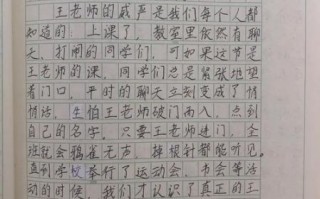 王老师的威严是我们每个人都
知道的：上课了，教室里依然有聊
天、打闹的同学们，可如果这节是
王老师的课，同学们总是紧张地望
着门口，平时的聊天立刻变成了悄
悄话，生怕王老师破门而入，点到
自己的名字。只要王老师进门，全
班就会鸦雀无声，掉根针都能听见。
直到学校举行了运动会、书会等活
动的时候，我们才认识了真正的王